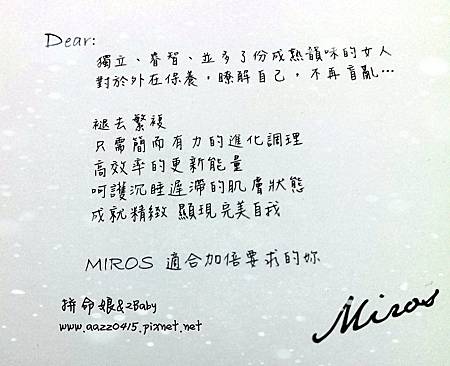 Dear:
獨立、睿智、並多了份成熟韻味的女人
對於外在保養，瞭解自己，不再盲亂…
褪去繁複
只需簡而有力的進化調理
高效率的更新能量
呵護沉睡遲滯的肌膚狀態
成就精緻 顯現完美自我
MIROS 適合加倍要求的妳
拼命娘&2Baby
www.aazz0415.pixnet.net
Miros